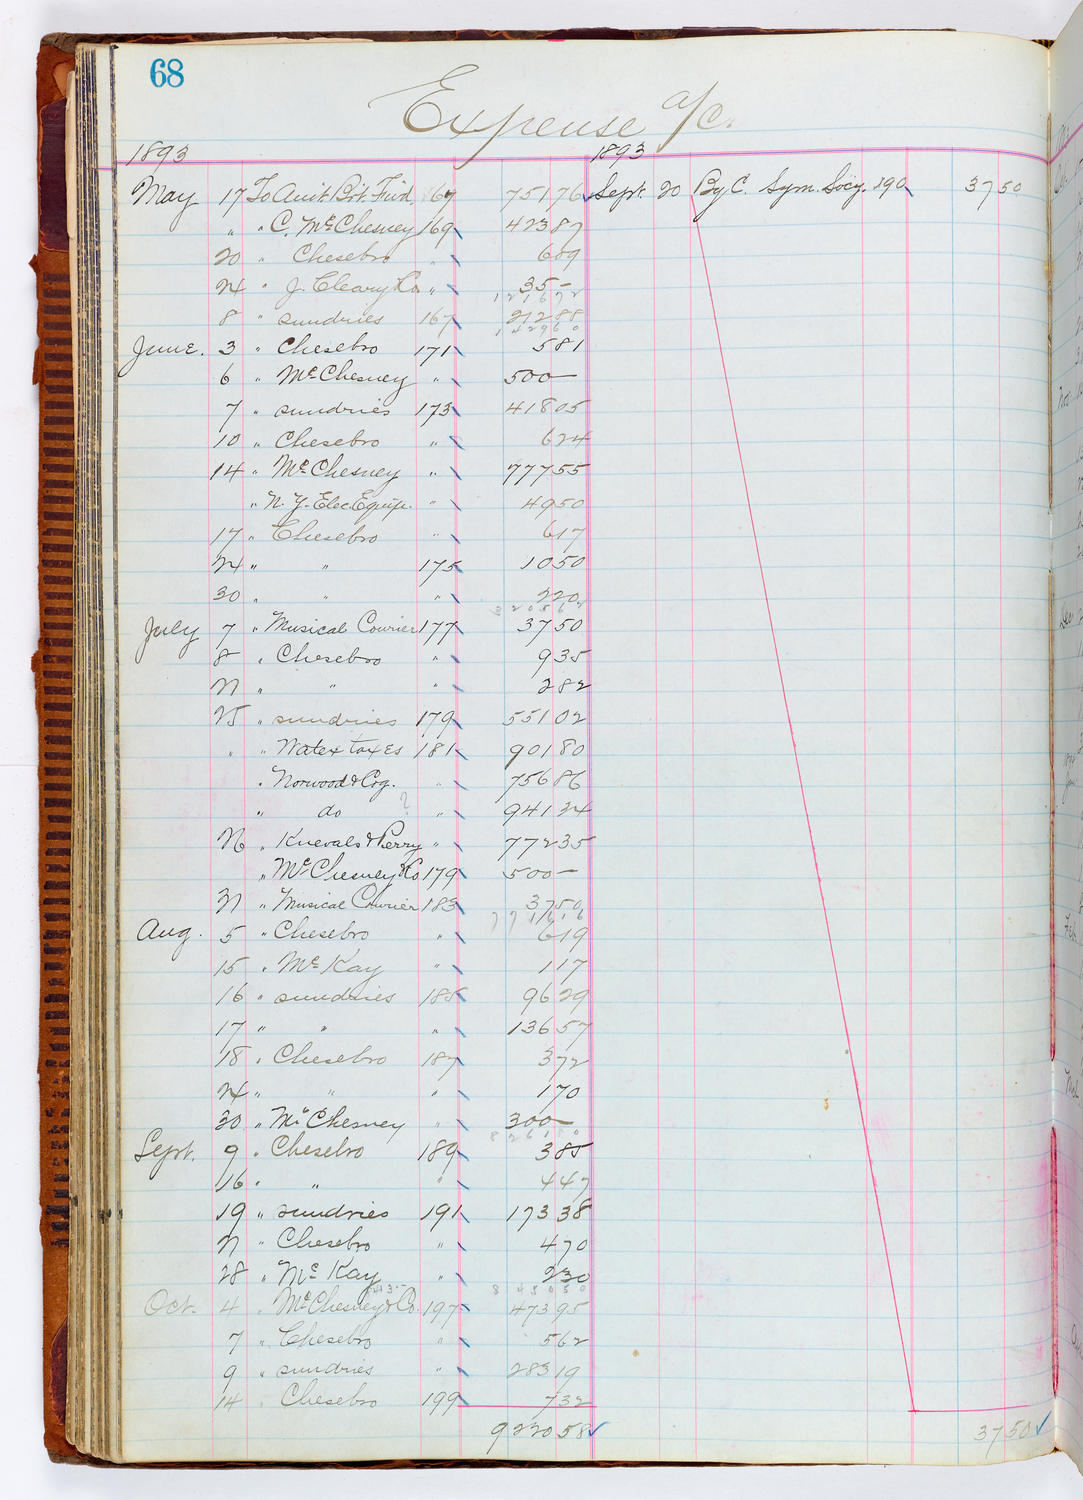 68
Expense a/c.
1893 1893
May 17 To Audit. Bot. Fund. 167 751 76 Sept. 20 By C. Sym. Socy. 190 37 50
" " C. McChesney 169 423 87
20 " Chesebro " 6 89
24 " J. Cleary & Co " 35 –
1216 72
8 " sundries 167 212 88
1429 60
June. 3 " Chesebro 171 5 81
6 " McChesney " 500 –
7 " sundries 173 418 05
10 " Chesebro " 6 24
14 " McChesney " 777 55
" N. Y. Elec. Equip. " 49 50
17 " Chesebro " 6 17
24 " " 175 10 50
30 " " " 2 20
July 7 " Musical Courier 177 37 50
8 " Chesebro " 9 35
21 " " " 2 82
25 " sundries 179 551 02
" " Water taxes 181 901 80
" Norwood & Cog. " 756 86
" do ? " 941 24
26 " Knevals & Perry " 772 35
" McChesney & Co 179 500 –
21 " Musical Courier 183 37 50
Aug. 5 " Chesebro " 6 19
15 " McKay " 1 17
16 " sundries 185 96 29
17 " " " 136 57
18 " Chesebro 187 3 72
24 " " " 1 70
30 " McChesney " 300 –
8261 80
Sept. 9 " Chesebro 189 3 85
16 " " " 4 47
19 " sundries 191 173 38
21 " Chesebro " 4 70
28 " McKay " 2 30
8450 50
Oct. 4 " McChesney & Co. 197 473 95
7 " Chesebro " 5 62
9 " sundries " 283 19
14 " Chesebro 199 7 32
9220 58 37 50